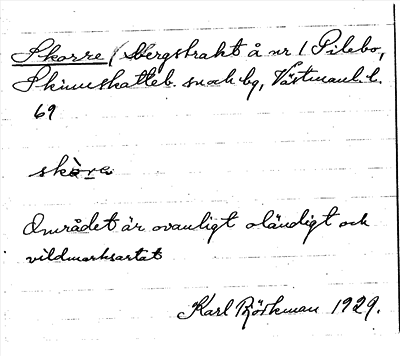 Skorre (bergstrakt å nr 1 Pilebo,
Skinnskatteb. sn och bg, Västmanl. l.
69
skòre
Området är ovanligt oländigt och
vildmarksartat
Karl Björkman 1929.